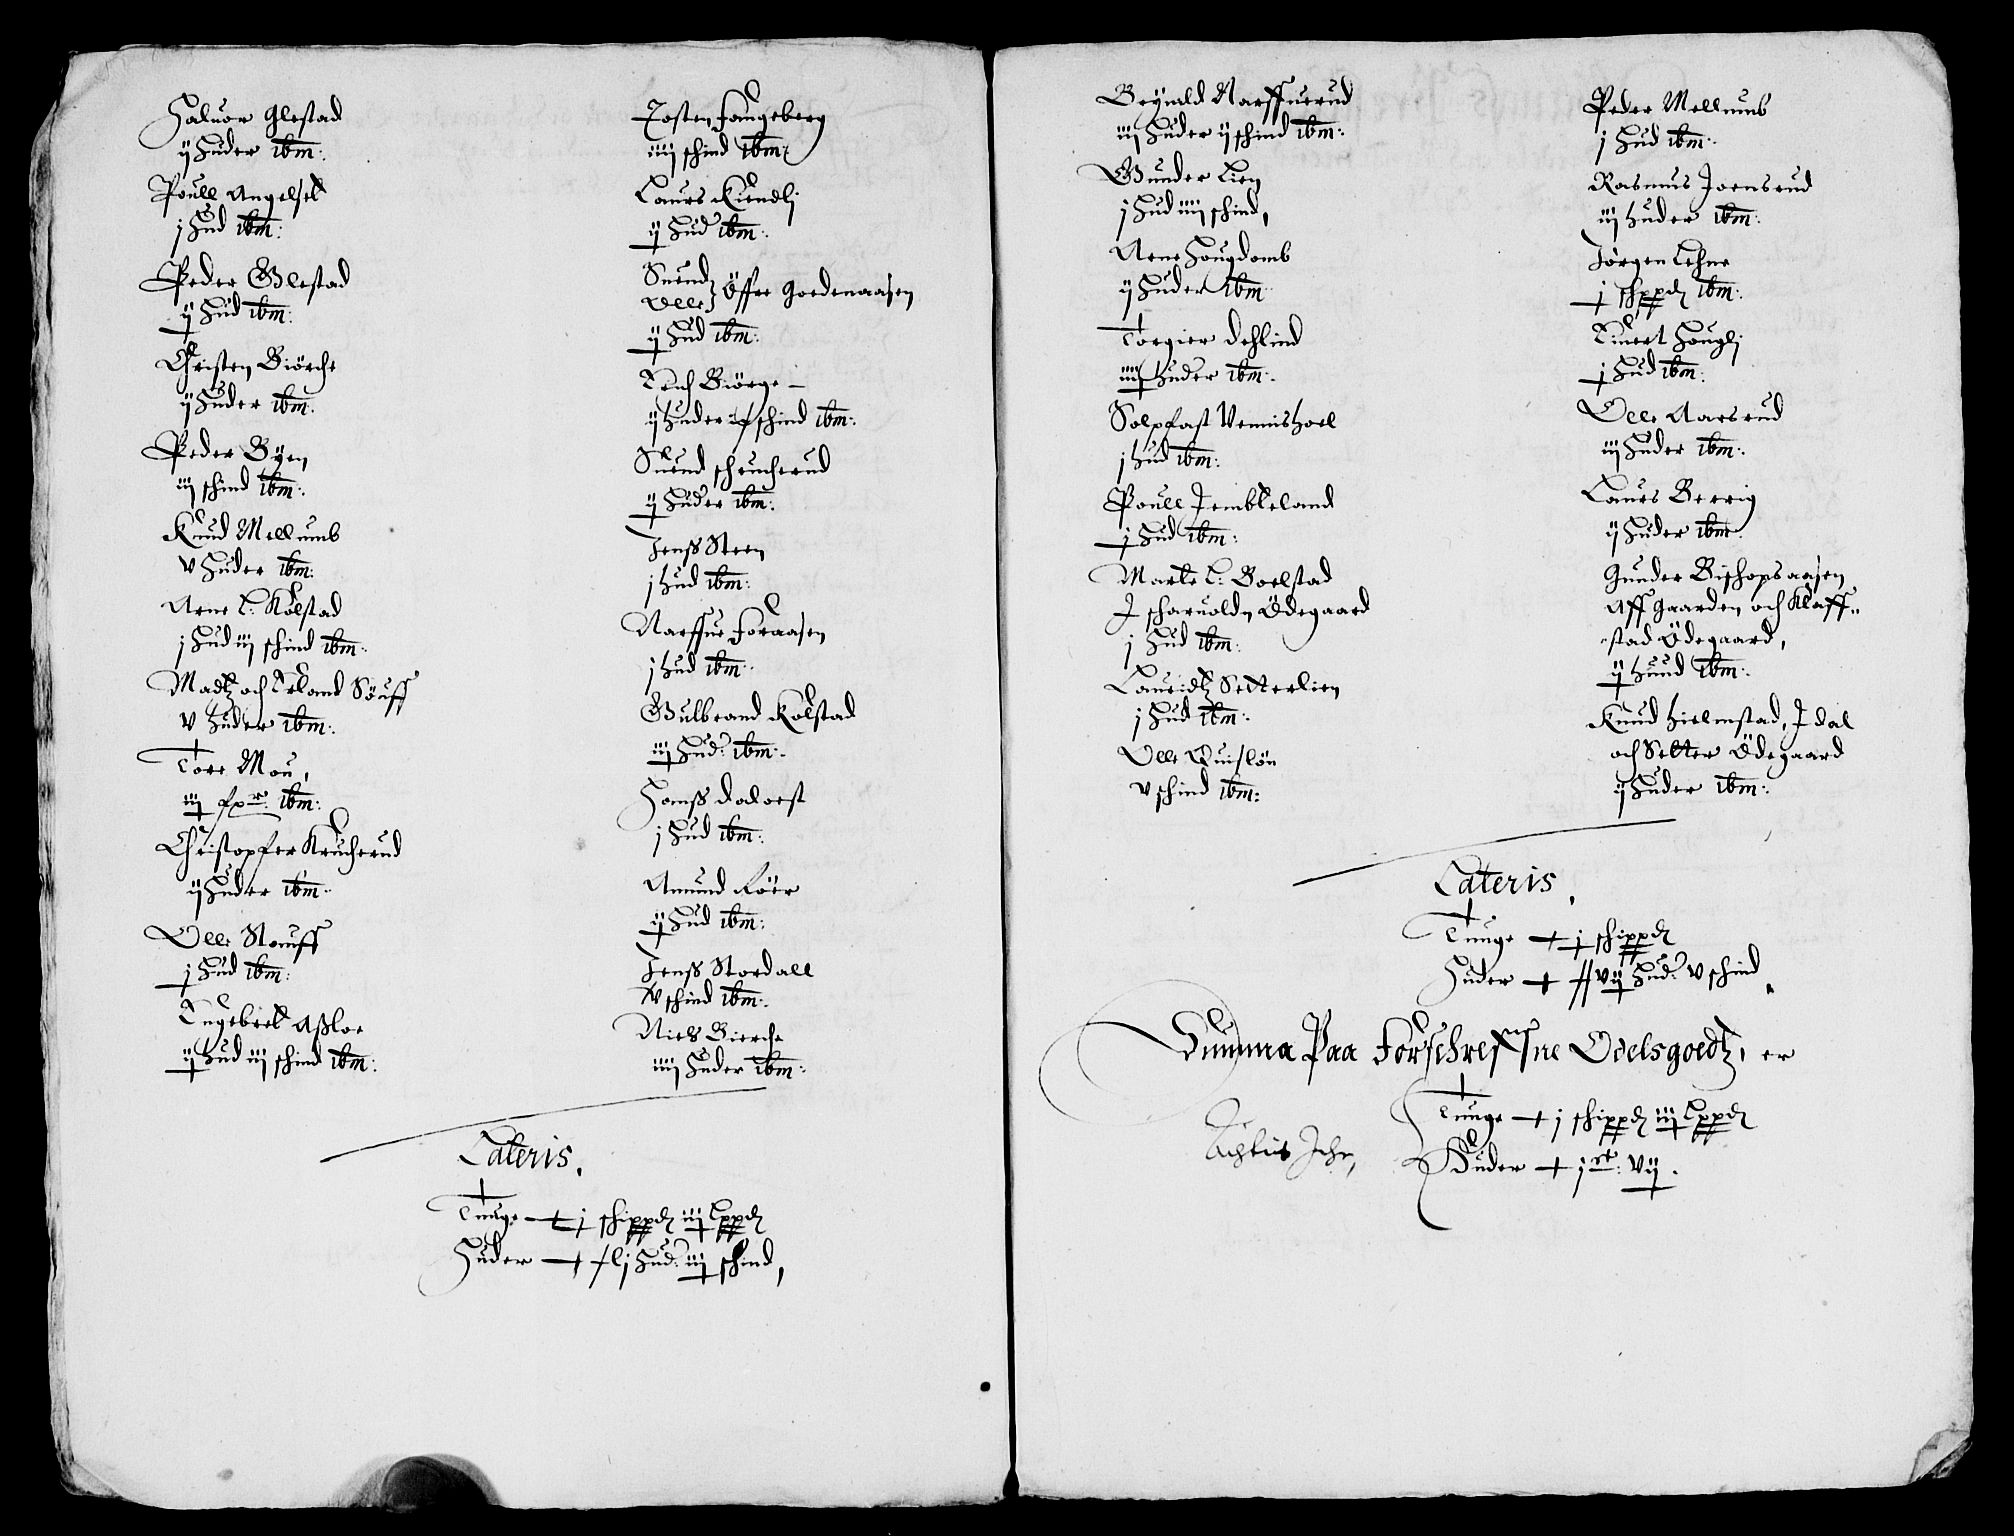 Haluor Glestad
ij Huder ibm:
Poull Angelset
j Hud ibm:
Peder Glestad
ij Hud ibm:
Christen Biörche
ij Huder ibm:
Peder Byen
iij schind ibm:
Knud Mellumb
v Huder ibm:
Arne l: Kolstad
j Hud iij schind ibm:
Madtz och Erland Söuff
v Huder ibm:
Tore Mou,
iij ibm:
Christopfer Krucherud
ij Huder ibm:
Olle Stouff
j Hud ibm:
Engebret Aßloe
ij Hud iij schind ibm:
Josten Fougeberg
iiij schind ibm:
Laurs Kundlj
ij Hud ibm:
Suend
Olle Öffre Goedenaasen
ij Hud ibm:
Erich Biörge
ij Huder schind ibm:
Suend schrucherud
ij Huder ibm:
Jenss Steen
j Hud ibm:
Narffue Foraasen
j Hud ibm:
Gulbrand Kolstad
iij Hud: ibm:
Hanss dalorst
j Hud ibm:
Amund Röer
ij Hud ibm:
Jenss Stordall
v schind ibm:
Niels Bierche
iiij Huder ibm:
Lateris.
Tunge j schippd iij Lppd
Huder xlj Hud: iij schind,
Reynald Narffuerud
iij Huder ij schind ibm:
Gunder Lien
j Hud iiij schind,
Arne Hougdomb
ij Huder ibm
Torgier Dehlind
iiij Huder ibm:
Solpfast Vennishoel
j Hud ibm:
Poull Jembteland
j Hud ibm:
Marte l: Boelstad
J Ödegaard
j Hud ibm:
Lauridtz Setterlien
j Hud ibm:
Olle Quislön
v schind ibm:
Peder Mellumb
j Hud ibm:
Rasmus Joensrud
iij huder ibm:
Jörgen Lehne
j schppd ibm:
Eiuert Houglj
j Hud ibm:
Olle Aarsrud
iij Huder ibm:
Laurs Berrig
ij Huder ibm
Gunder Bischopsaasen
Aff Gaarden och Klaff„
„stad Ödegaard,
ij Huud ibm:
Knud Hielmstad, J dal
och Setter Ödegaard
ij Huder ibm:
Lateris.
Tunge j schippd
Huder xxvij Hud: v schind.
Summa Paa Forschreffne Odelsgoedtz, er
Tunge j schippd iij Lppd
Huder j vij.